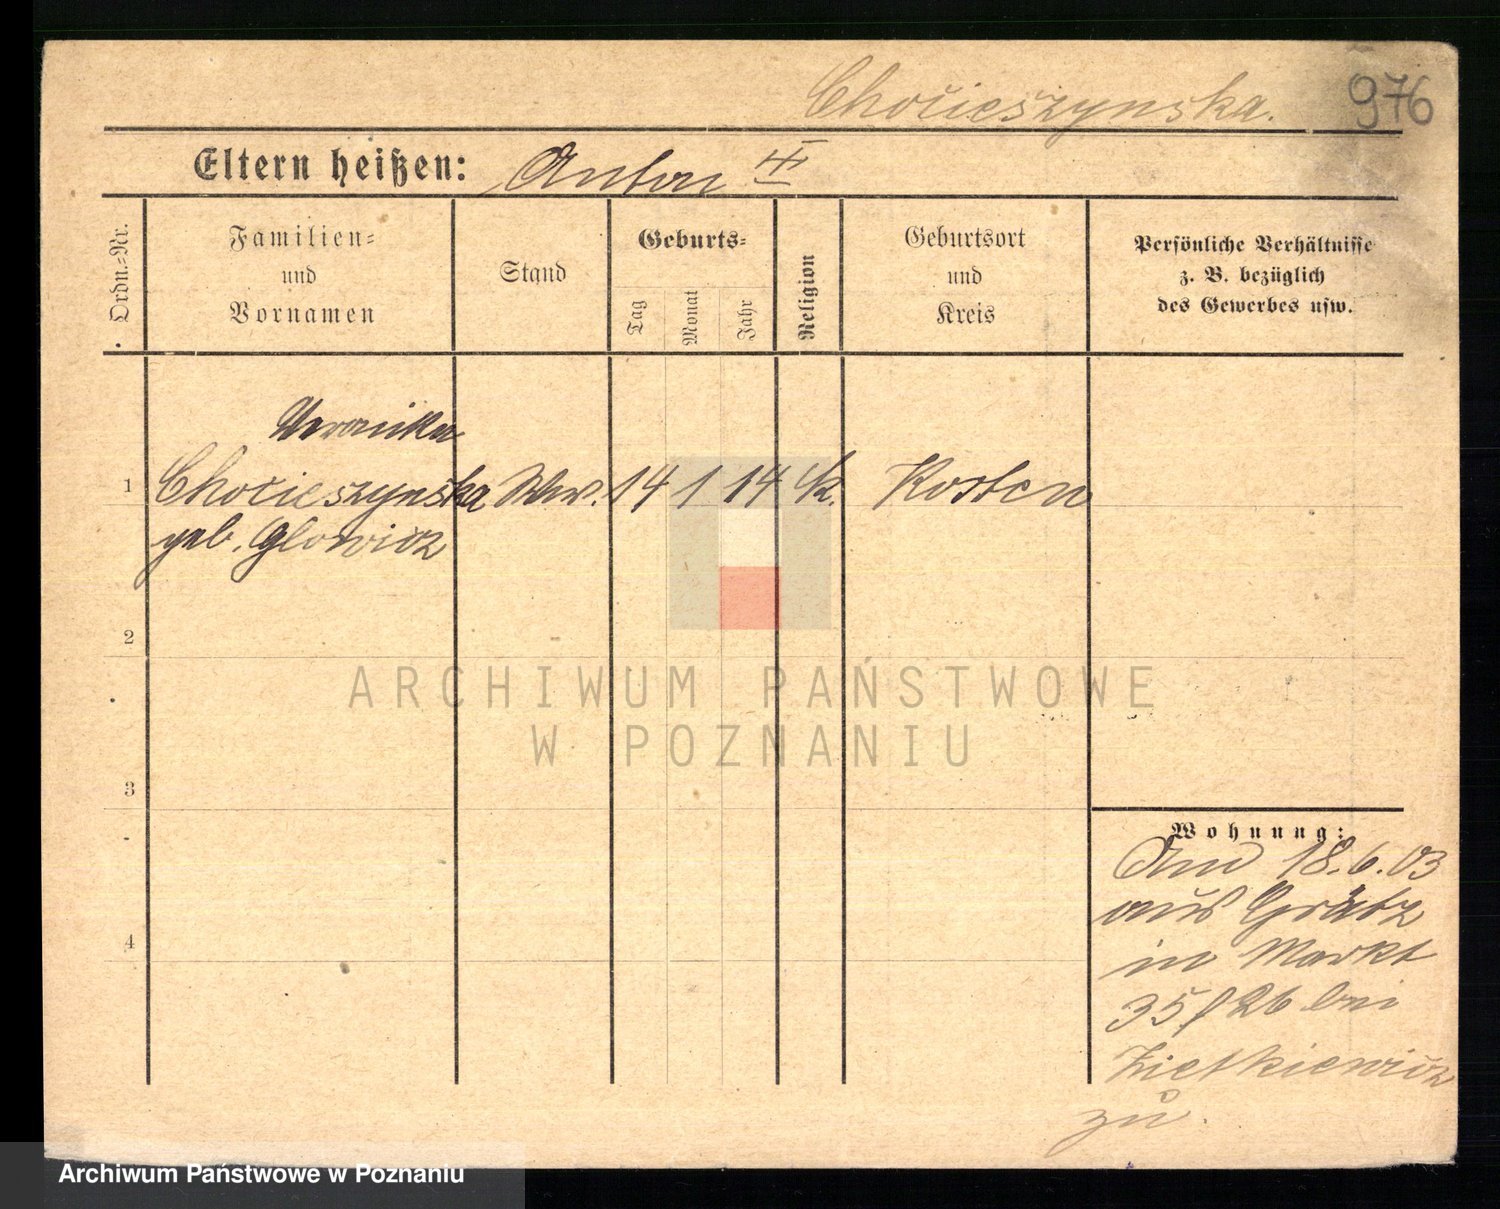 Chocieszynska. 976
Eltern heißen: Anton
Ordn.-Nr.
Familien-
und
Vornamen
Stand
Geburts-
Tag
Monat
Jahr
Religion
Geburtsort
und
Kreis
Persönliche Verhältnisse
z. B. bezüglich
des Gewerbes usw.
Veronika
1 Chocieszynska Ww. 14 1 14 k. Kosten
geb. Glowicz
2
3
4
Wohnung:
Am 18.6.03
aus Grätz
in Markt
35/26 bei
Zietkiewicz
zu.
ARCHIWUM PAŃSTWOWE
W POZNANIU
Archiwum Państwowe w Poznaniu